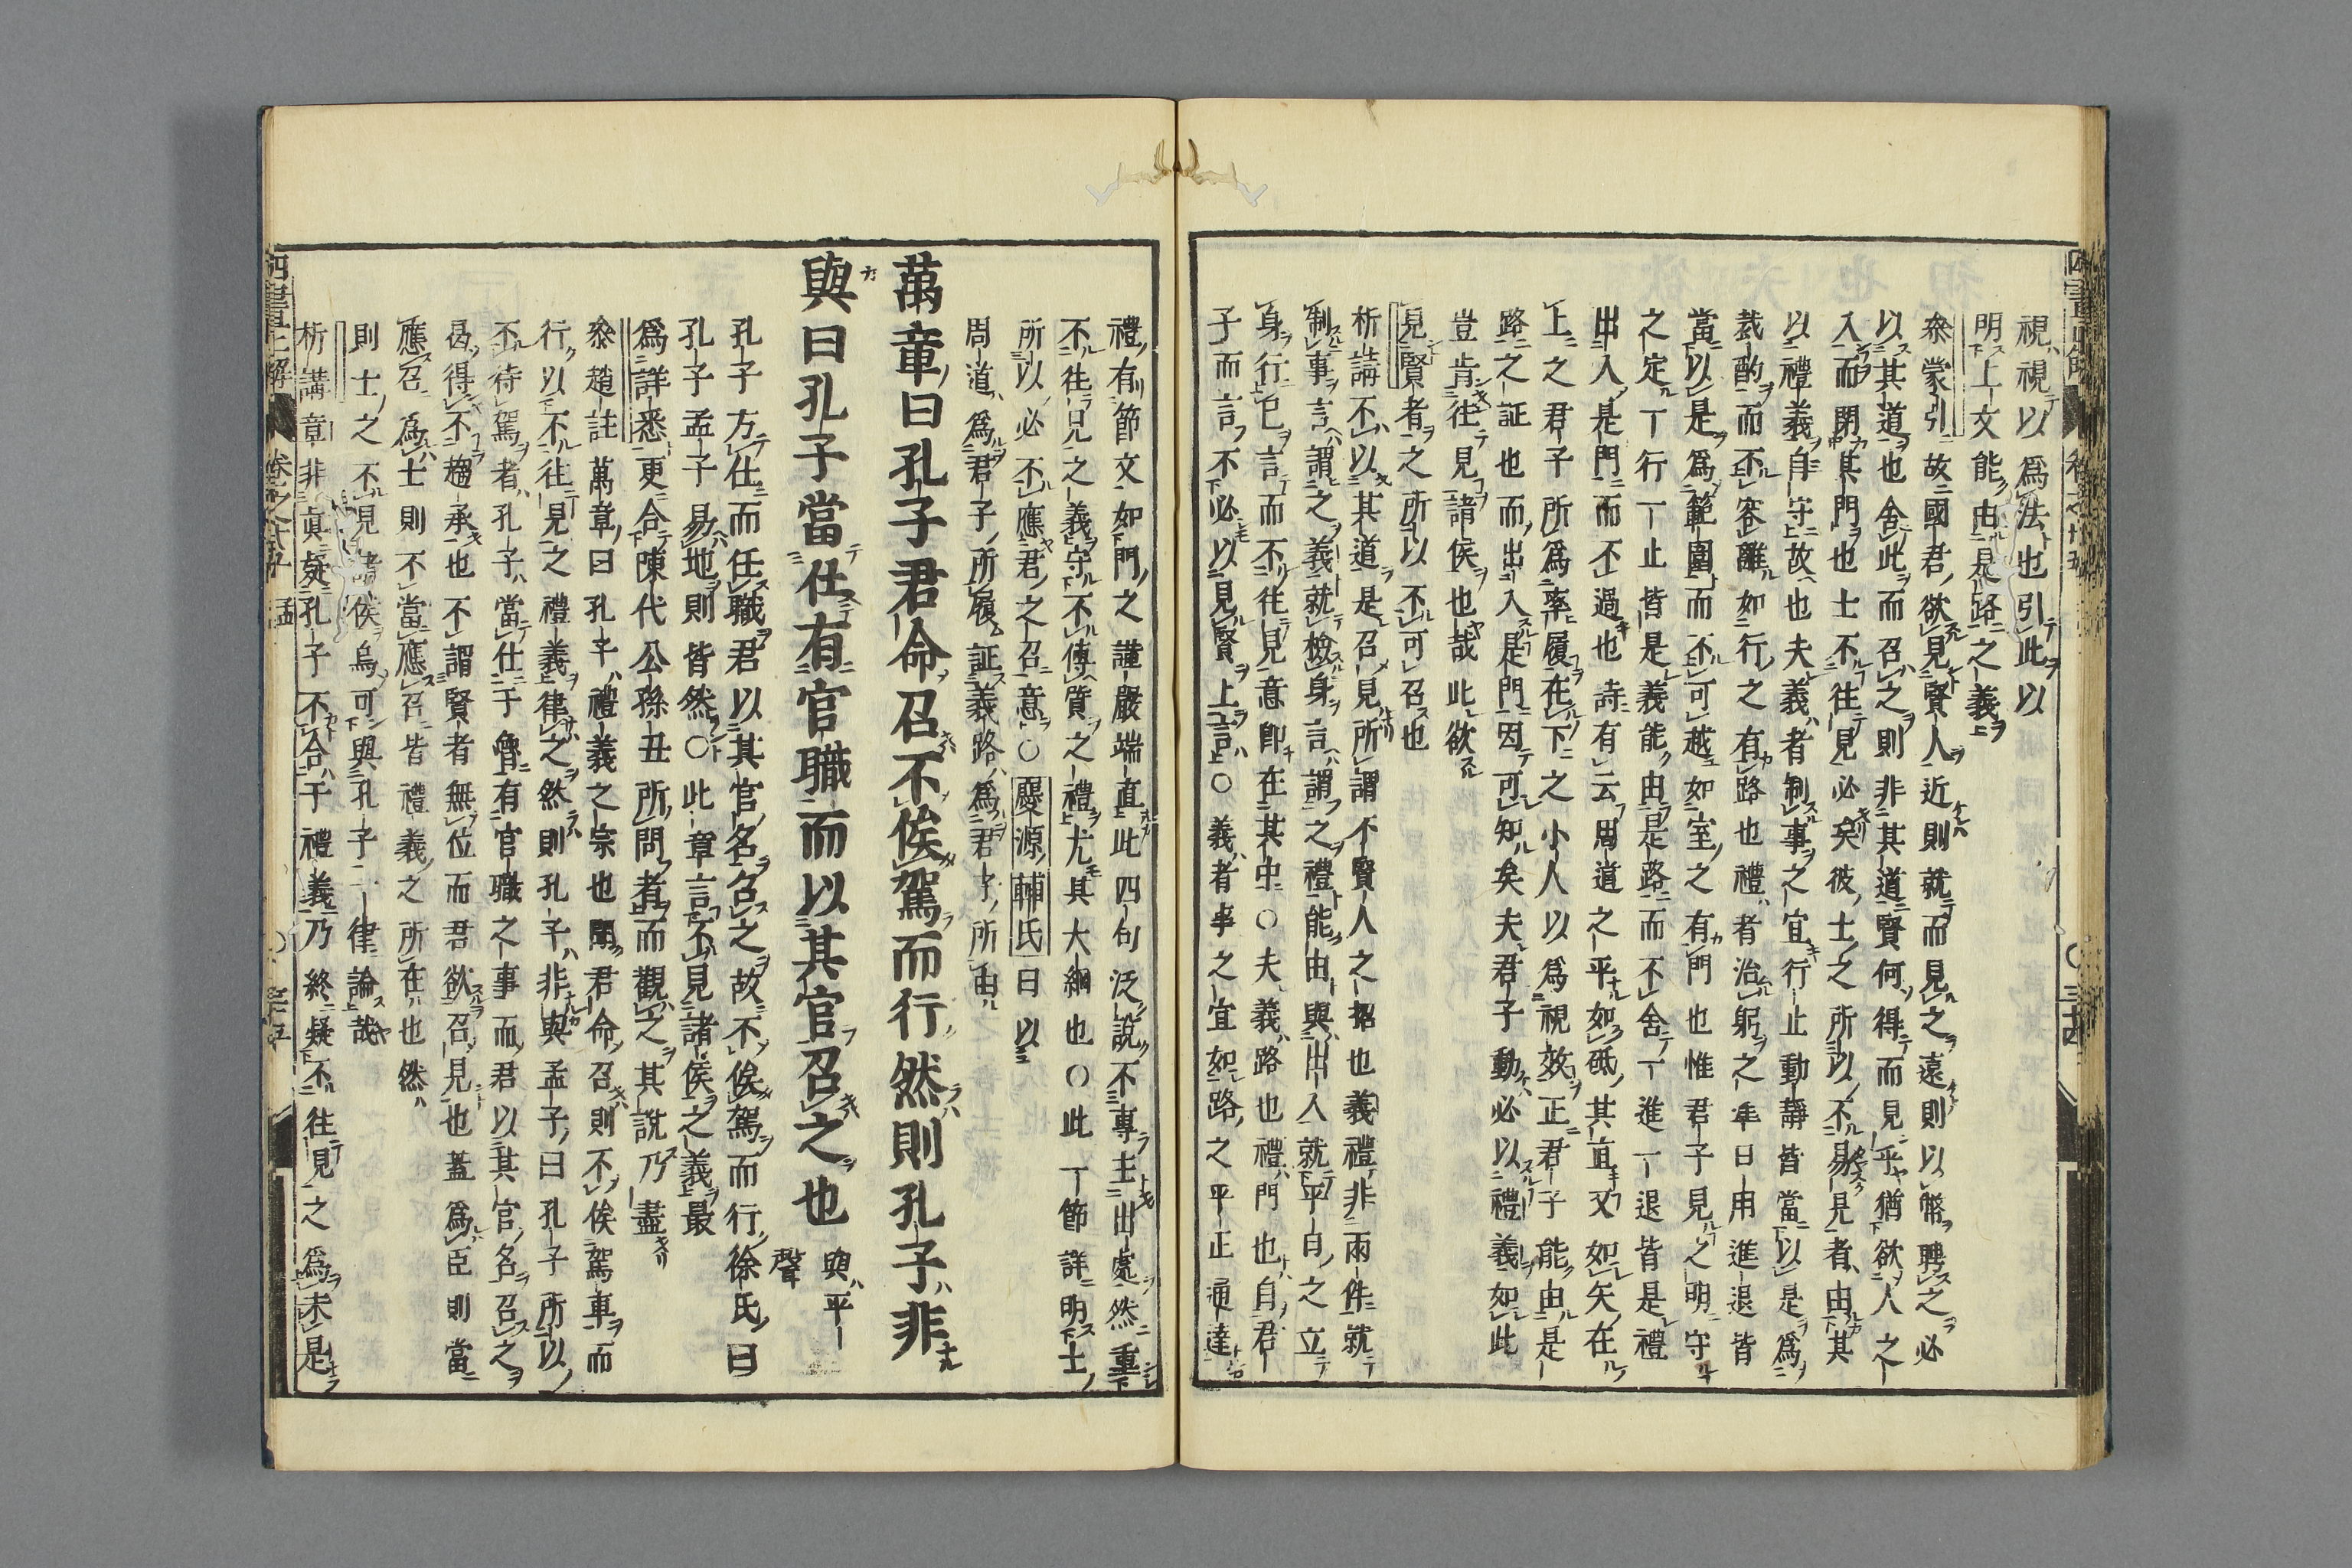 視視以爲法也引此以
明上文能由是路之義
叅蒙引故國君欲見賢人近則就而見之遠則以幣聘之必
以其道也舍此而召之則非其道賢何得而見乎猶欲人之
入而閉其門也士不往見必矣彼士之所以不易見者由其
以禮義自守故也夫義者制事之宜行止動靜皆當以是爲
裁酌而不容離如行之有路也禮者治躬之準日用進退皆
當以是爲範圍而不可越如室之有門也惟君子見之明守
之定丁行丁止皆是義能由是路而不舍丁進丁退皆是禮
出入是門而不過也詩有云周道之平如砥其直又如矢在
上之君子所爲率履在下之小人以爲視效正君子能由是
路之証也而出入是門因可知矣夫君子動必以禮義如此
豈肯往見諸侯也哉此欲
見賢者之所以不可召也
析講不以其道是召見所謂不賢人之招也義禮非兩件就
制事言謂之義就檢身言謂之禮能由與出入就平白之立
身行己言而不往見意卽在其中○夫義路也禮門也自君
子而言不必以見賢上言○義者事之宜如路之平正通達
禮有節文如門之謹嚴端直此四句泛說不專主出處然重
不往見之義守不傳質之禮尤其大綱也○此丁節詳明士
所以必不應君之召意○慶源輔氏曰以
周道爲君子所履証義路爲君子所由
萬章曰孔子君命召不俟駕而行然則孔子非
與曰孔子當仕有官職而以其官召之也 與平
聲
孔子方仕而任職君以其官名召之故不俟駕而行徐氏曰
孔子孟子易地則皆然○此章言不見諸侯之義最
爲詳悉更合陳代公孫丑所問者而觀之其說乃盡
叅趙註萬章曰孔子禮義之宗也聞君命召則不俟駕車而
行以不往見之禮義律之然則孔子非與孟子曰孔子所以
不待駕者孔子當仕于魯有官職之事而君以其官名召之
曷得不趨承也不謂賢者無位而君欲召見也蓋爲臣則當
應召爲士則不當應召皆禮義之所在也然
則士之不見諸侯烏可與孔子一律論哉
析講章非眞疑孔子不合于禮義乃終疑不往見之爲未是